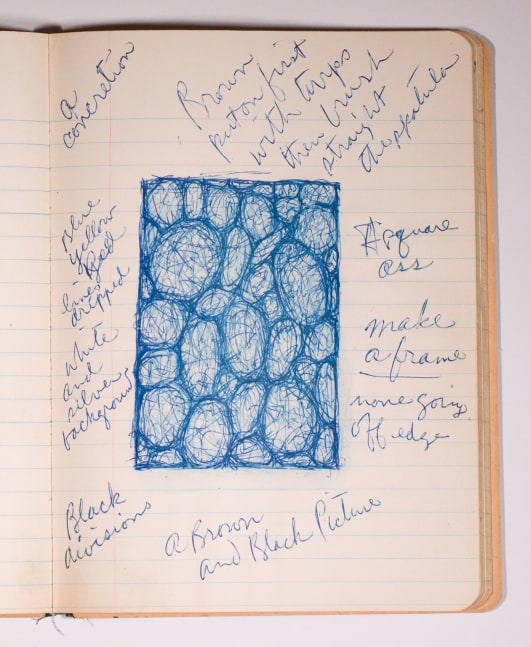 a
concretion
Brown
put on first
with turps
then brush
straight
the spatula
Blue
yellow
Red
lines
dripped
white
and
silver
background
square
ass
make
a frame
none going
off edge
Black
divisions
a Brown
and Black Picture